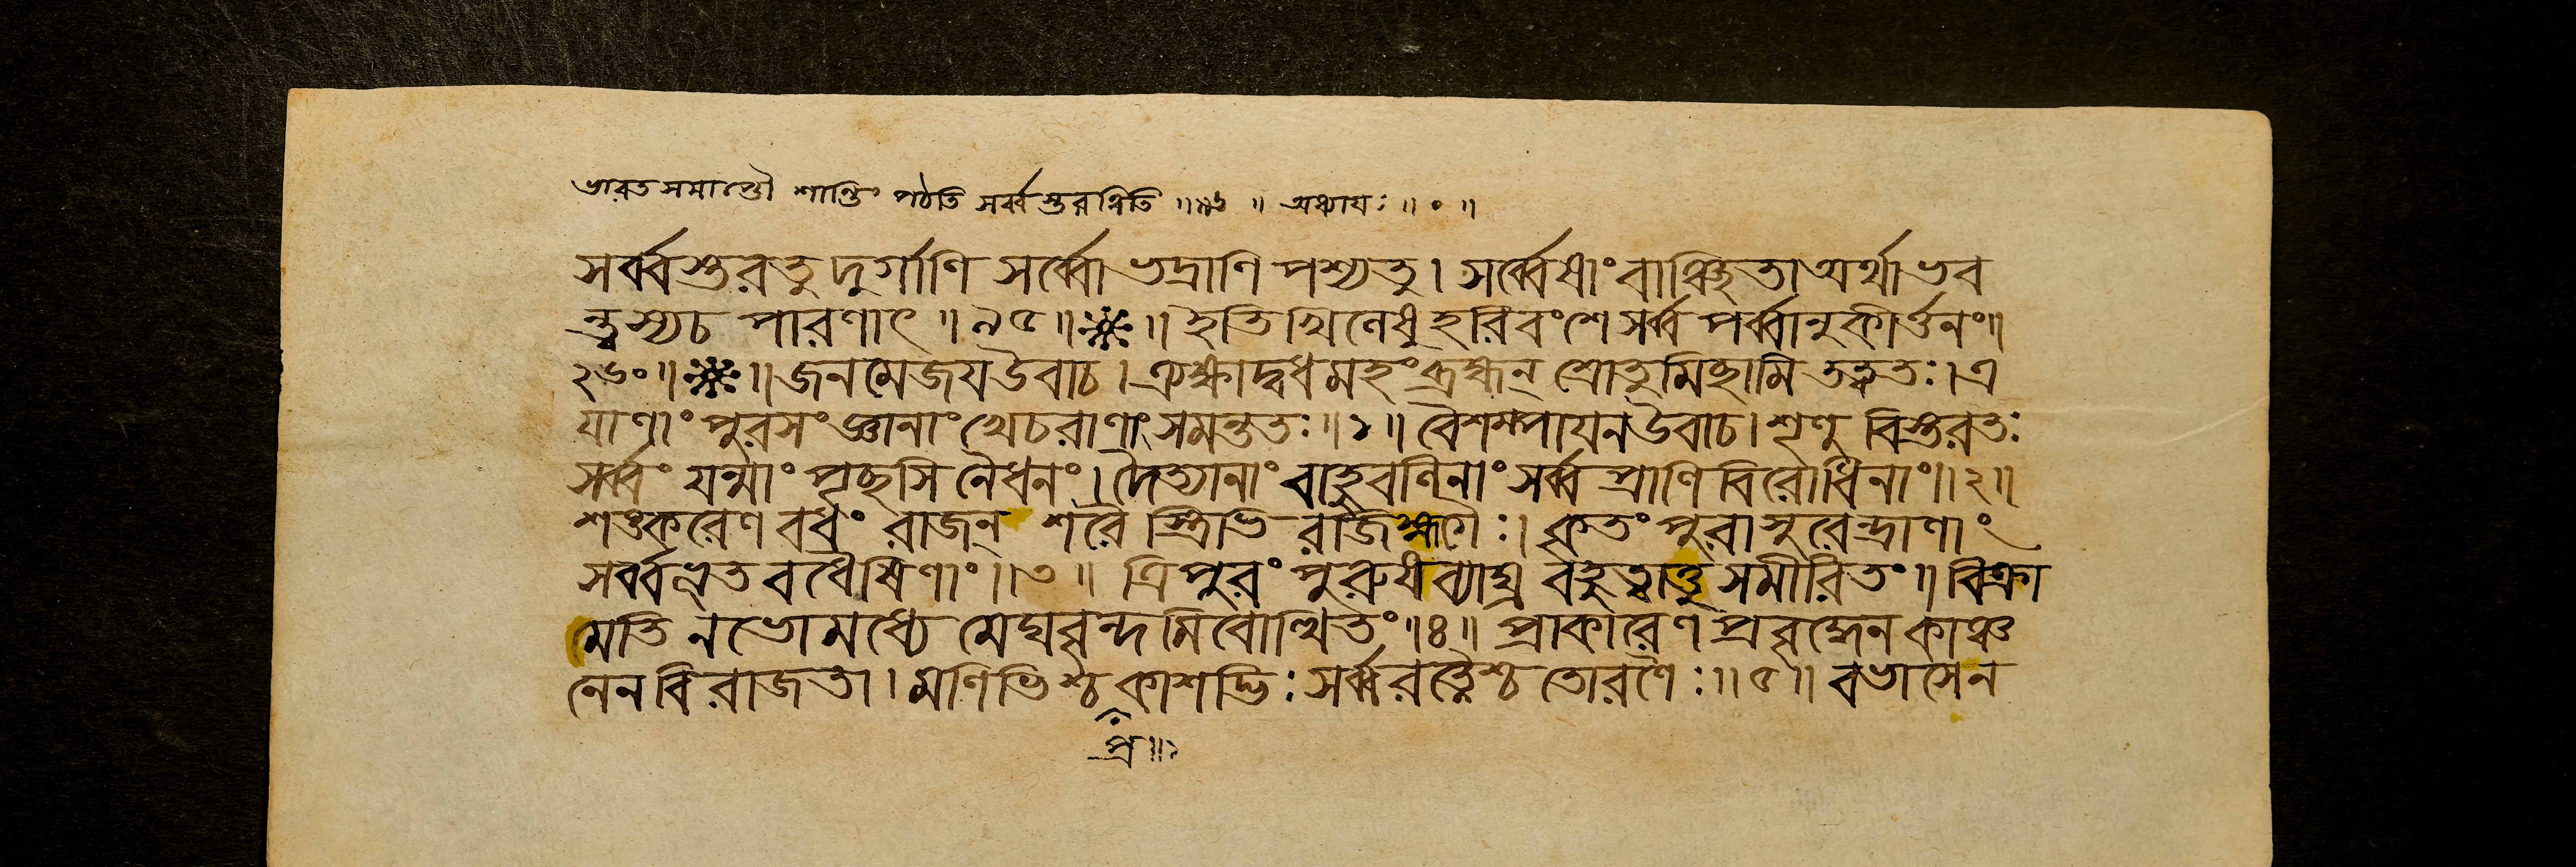 ভারত সমাপ্তৌ শান্তিং পঠতি সর্ব্বস্তরন্বিতি ॥ ॥ অধ্যায়ঃ ॥ ० ॥
সর্ব্বস্তরতু দুর্গাণি সর্ব্বো ভদ্রাণি পশ্যতু। সর্ব্বেষাং বাঞ্ছিতা অর্থা ভব
ন্ত্বস্যচ পারণাৎ ॥ ৯৫ ॥ ※ ॥ ইতি খিলেষু হরিবংশে সর্ব্ব পর্ব্বানুকীর্ত্তনং॥
২৬০ ॥ ※ ॥ জনমেজয উবাচ। ত্র্যক্ষাদ্বধমহং ব্রহ্মন্ শ্রোতুমিচ্ছামি তত্ত্বতঃ। ত্র
যাণাং পুরসংজ্ঞানাং খেচরাণাং সমন্ততঃ ॥ ১ ॥ বৈশম্পাযন উবাচ। শৃণু বিস্তরতঃ
সর্ব্বং যন্মাং পৃচ্ছসি নৈধনং। দৈত্যানাং বাহুবলিনাং সর্ব্ব প্রাণি বিরোধিনাং॥ ২ ॥
শঙ্করেণ বধং রাজন্ শরৈ স্ত্রিভি রজিহ্মগৈঃ। কৃতং পুরাসুরেন্দ্রাণাং
সর্ব্বভূত বধৈষিণাং॥ ৩ ॥ ত্রিপুরং পুরুষব্যাঘ্র বৃহদ্ধাতু সমীরিতং ॥ বিক্রা
মতি নভোমধ্যে মেঘবৃন্দমিবোত্থিতং ॥ ৪ ॥ প্রাকারেণ প্রবৃদ্ধেন কাঞ্চ
নেন বিরাজতা। মণিভিশ্চ কাশদ্ভিঃ সর্ব্বরত্নৈশ্চ তোরণৈঃ ॥ ৫ ॥ বভাসেন
প্র ॥ ১